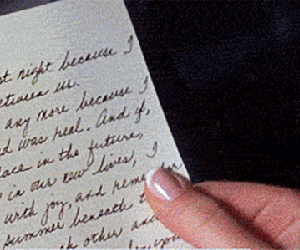 night because I
between us.
any more because I
was real. And if,
in the future,
in our new loves, I
with joy, and
summer beneath
each other and